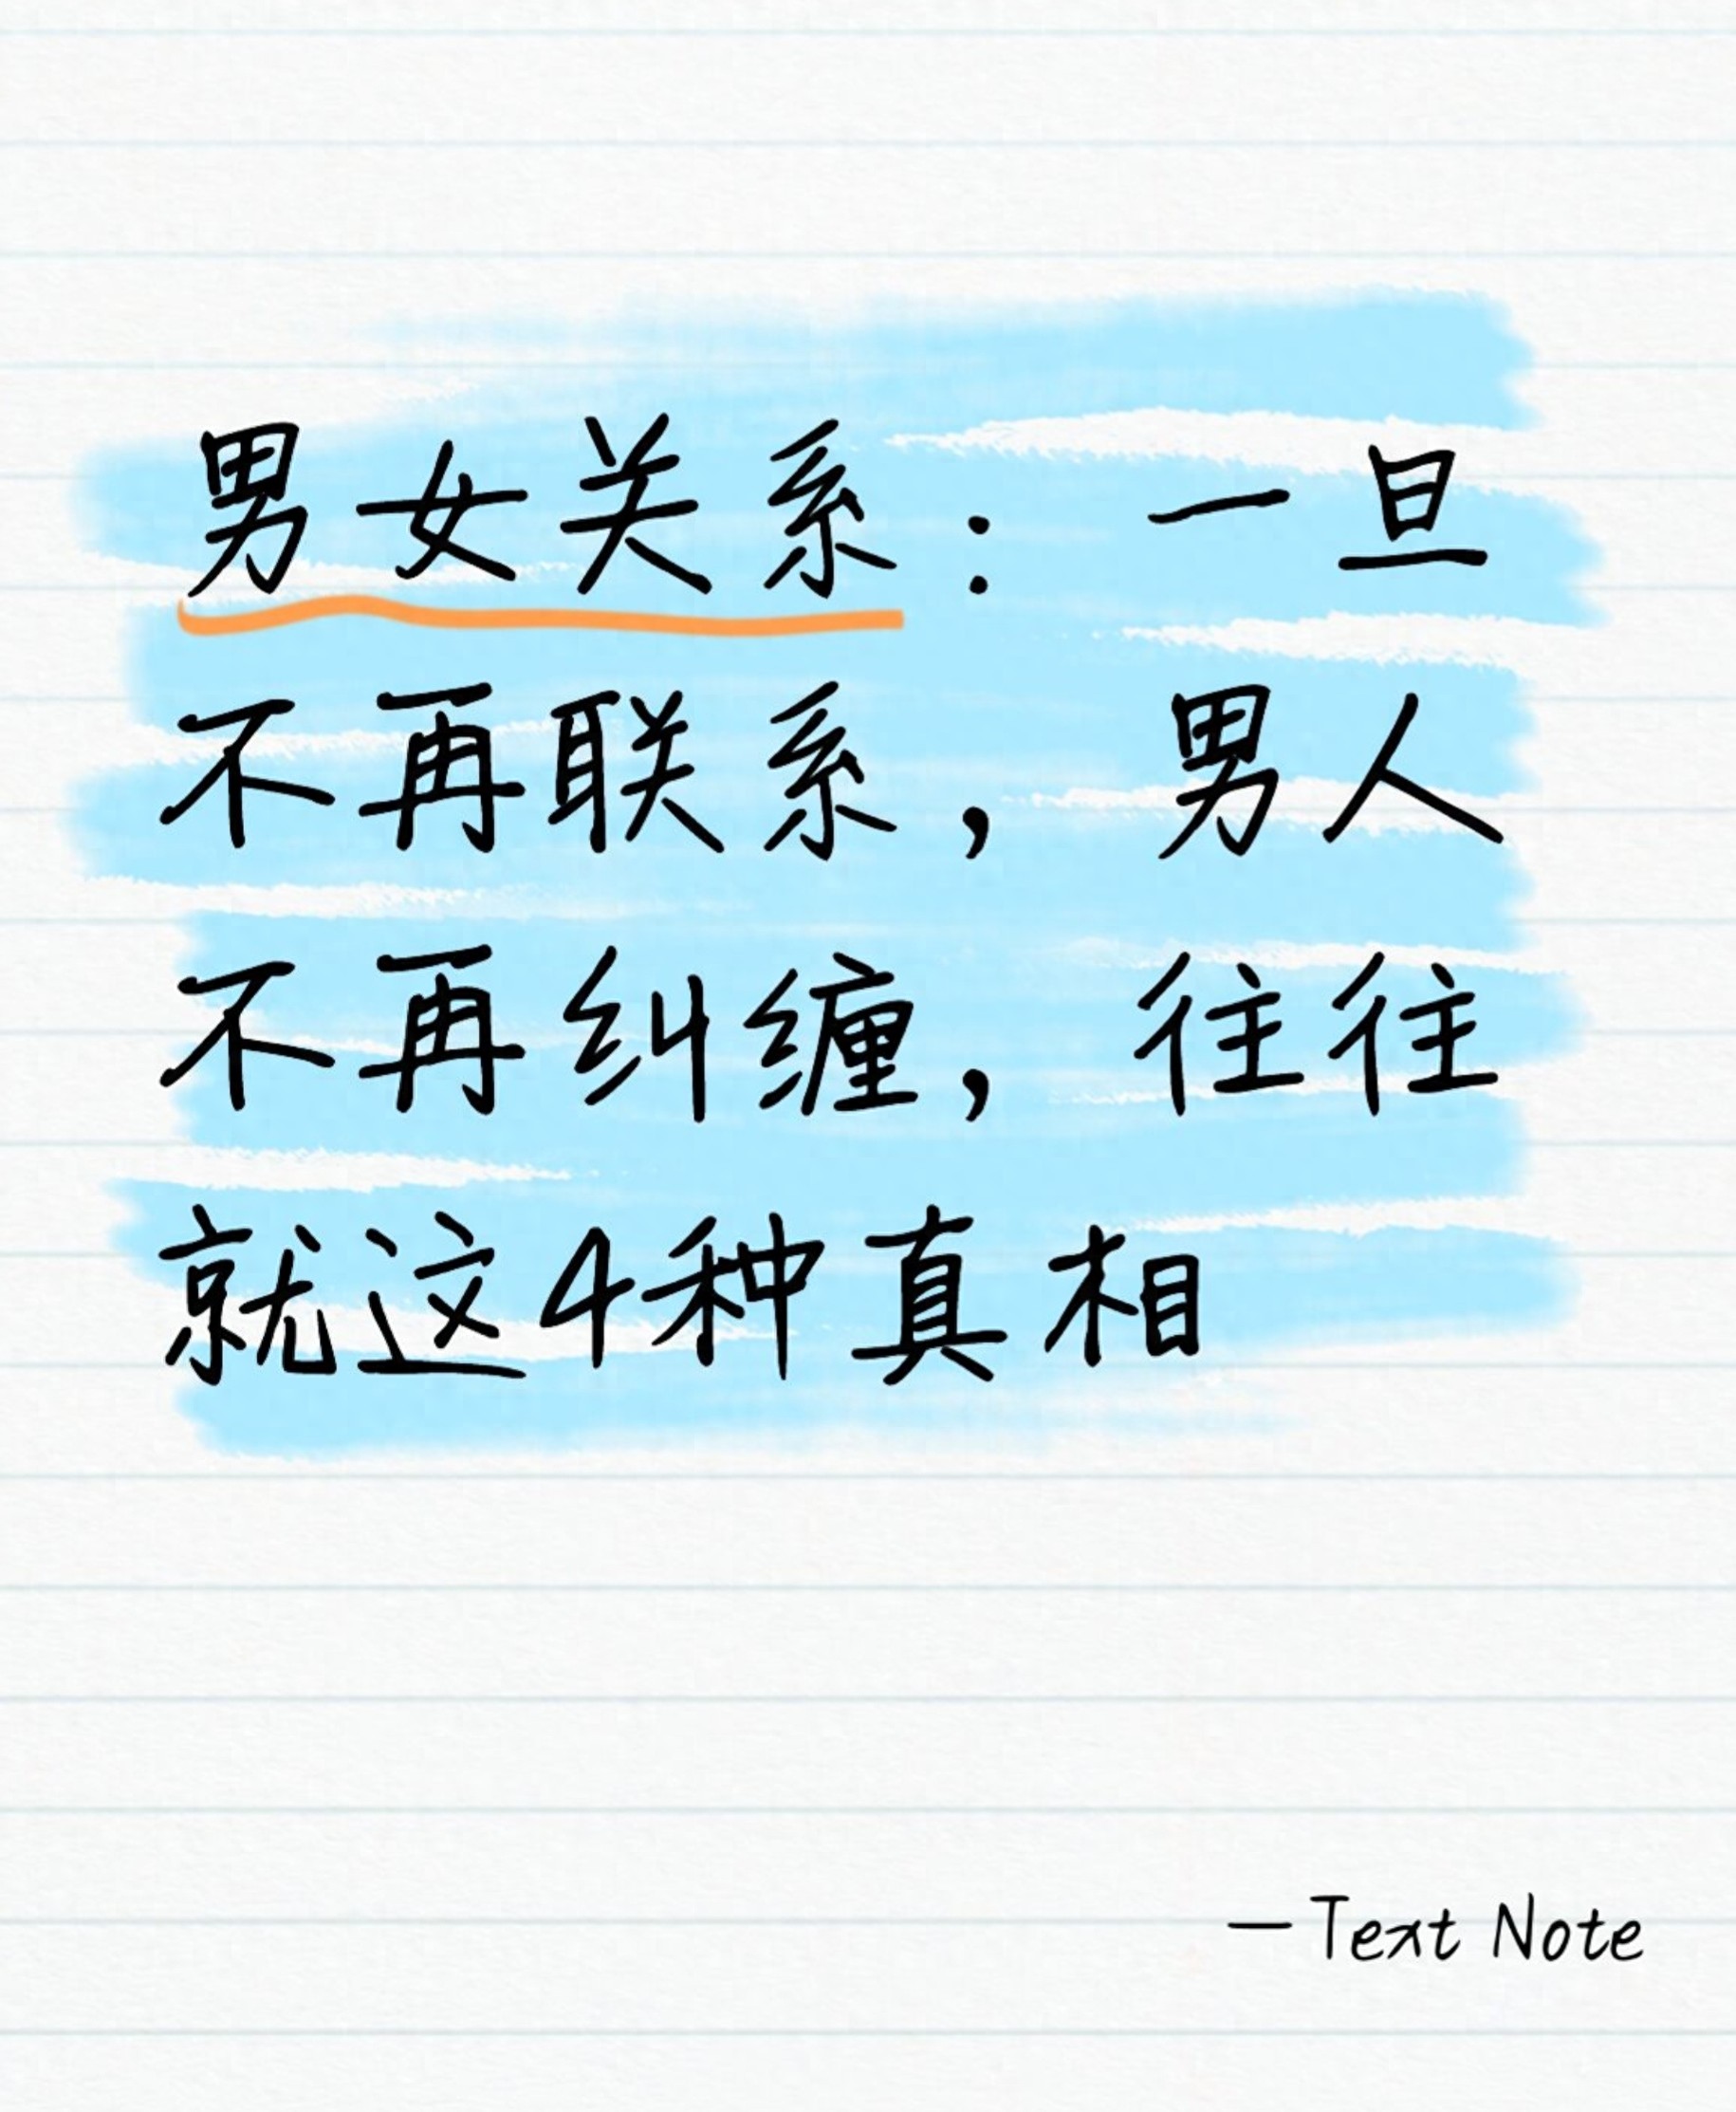 男女关系：一旦
不再联系，男人
不再纠缠，往往
就这4种真相
—Text Note